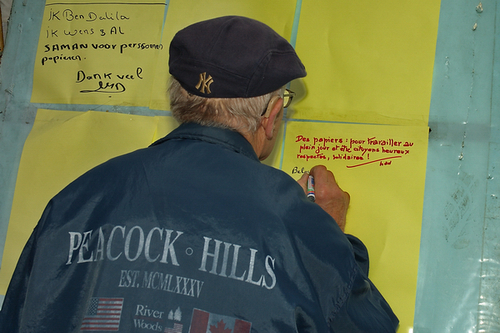 IK Ben Dalila
IK Wens 3 AL
SAMAN voor personnen
papieren.
Dank veel
Des papiers : pour travailler au
plein jour et être citoyens heureux
respectés, solidaires !
NY
PEACOCK HILLS
EST. MCMLXXXV
River
Woods